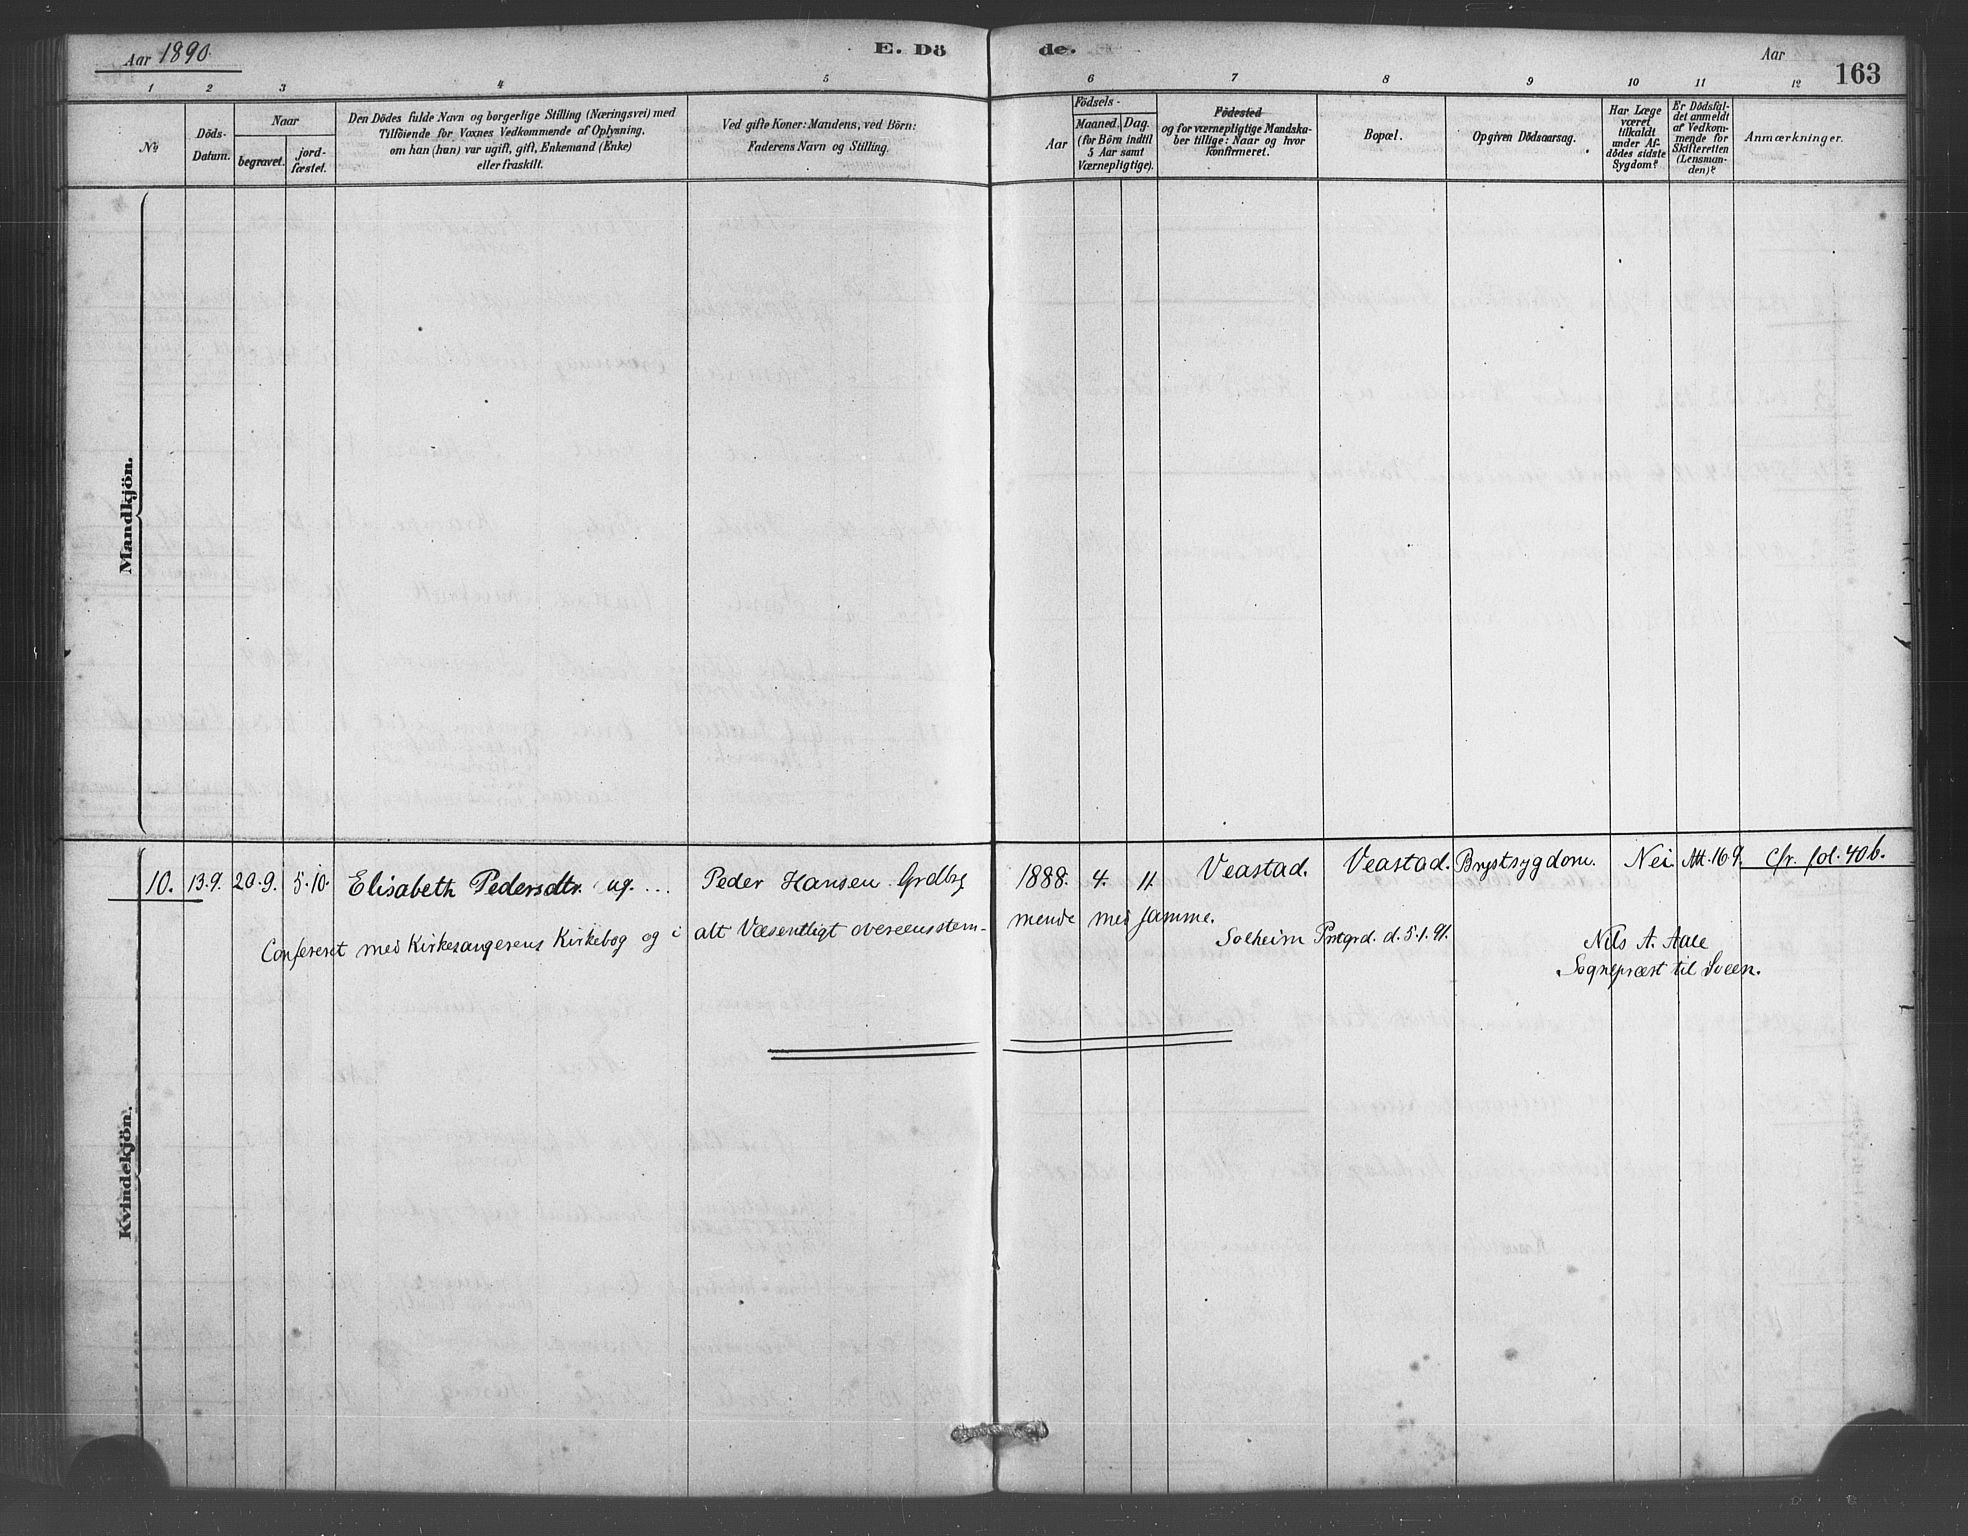 Aar 1890. E. Dö de. Aar 163
1 2 3 4 5 6 7 8 9 10 11 12
No
Döds-
Datum.
Naar
begravet.
jord-
fæstet.
Den Dödes fulde Navn og borgerlige Stilling (Næringsvei) med
Tilföiende for Voxnes Vedkommende af Oplysning,
om han (hun) var ugift, gift, Enkemand (Enke)
eller fraskilt.
Ved gifte Koner: Mandens, ved Börn:
Faderens Navn og Stilling.
Födsels-
Aar
Maaned. Dag.
(for Börn indtil
5 Aar samt
Værnepligtige).
Födested
og for værnepligtige Mandska-
ber tillige: Naar og hvor
konfirmeret.
Bopæl.
Opgiven Dödsaarsag.
Har Læge
været
tilkaldt
under Af-
dödes sidste
Sygdom?
Er Dödsfal-
det anmeldt
af Vedkom-
mende for
Skifteretten
(Lensman-
den)?
Anmærkninger.
Mandkjön.
10. 13.9. 20.9. 5.10. Elisabeth Pedersdtr. ug. ... Peder Hansen Grdbrg 1888. 4. 11. Veastad. Veastad. Brystsygdom. Nei Att. 16 9. Cfr. fol. 40 b.
Confereret med Kirkesangerens Kirkebog og i alt Væsentligt overeensstem-
mende med samme.
Solheim Prstgrd. d. 5.1.91.
Nils A. Aale
Sognepræst til Sveen.
Kvindekjön.